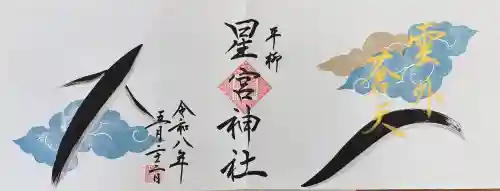 雲外
蒼天
平柳
星宮神社
令和八年
五月二十二日